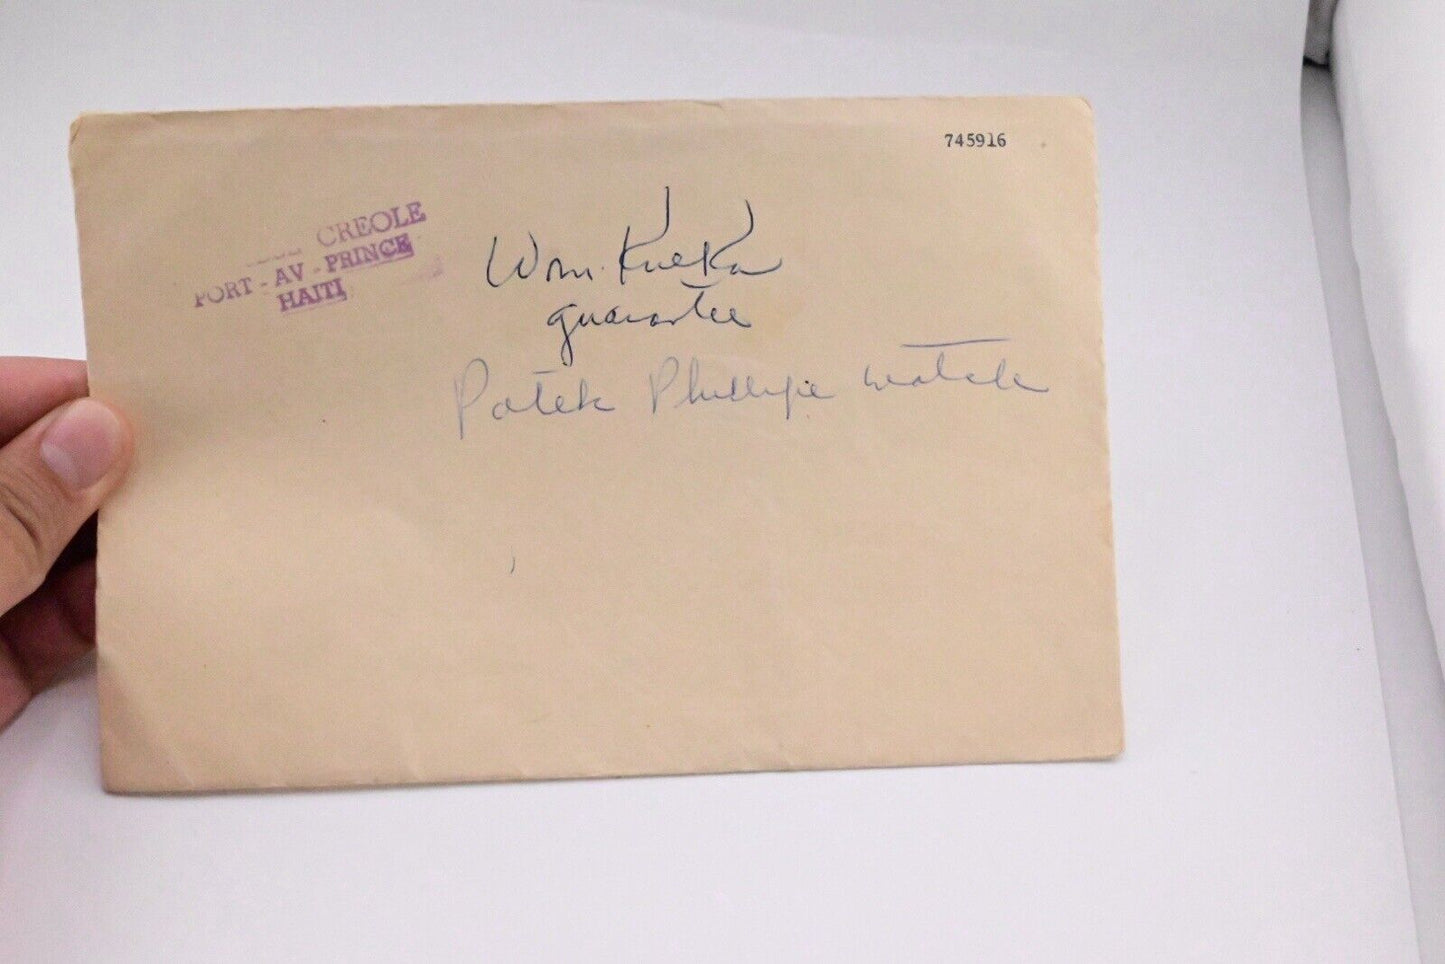 745916
CREOLE
PORT-AV-PRINCE
HAITI
Wm. Kueka
guarantee
Patek Phillipe watch